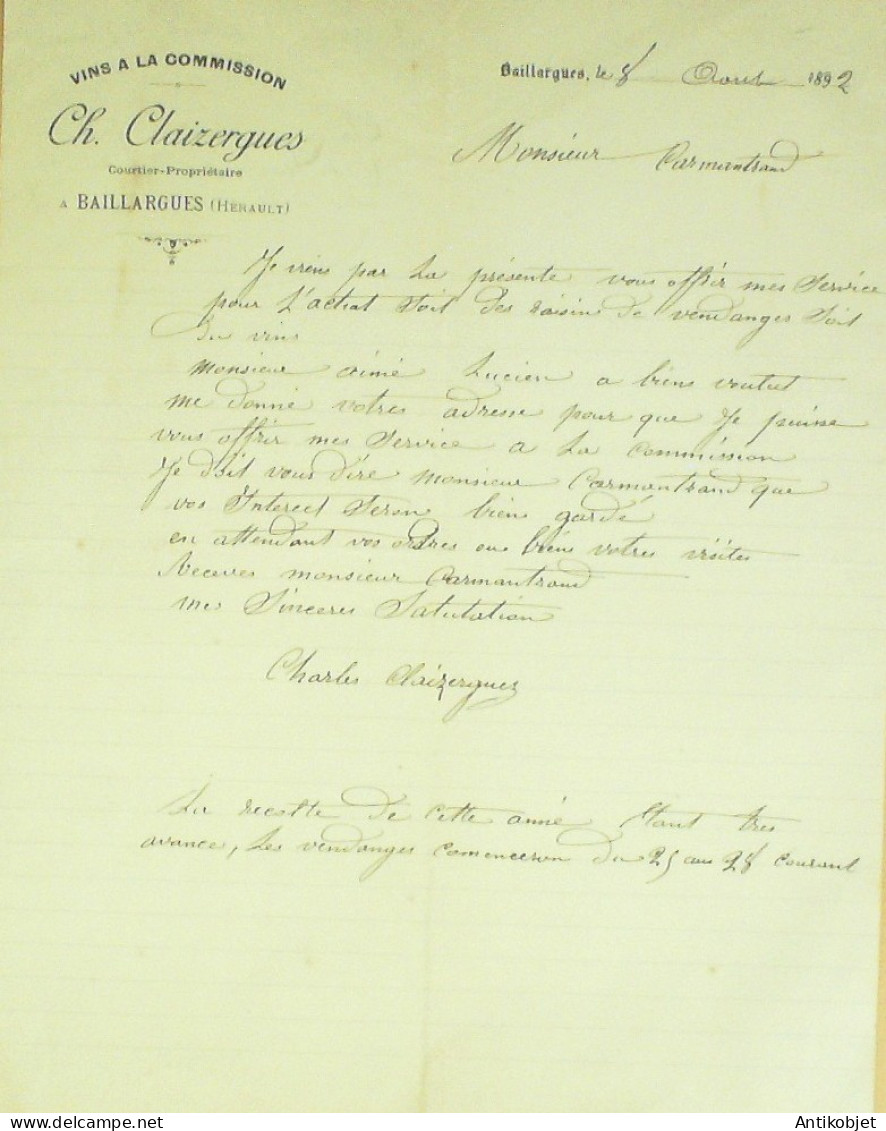 VINS A LA COMMISSION
Ch. Claizergues
Courtier-Propriétaire
A BAILLARGUES (HÉRAULT)
Baillargues, le 8 Aout 1892
Monsieur Carmantrand
Je viens par La présente vous offrir mes Service
pour L'achat Soit des raisin de vendanges Soit
du vins
monsieur aimé Lucien a biens voutut
me donné votres adresse pour que Je puise
vous offrir mes Service a La commission
Je doit vous dire monsieur Carmantrand que
vos Interect Seron biens gardé
en attendant vos ordres ou biens votres visites
Receves monsieur Carmantrand
mes Sinceres Salutation
Charles Claizergues
La recolte de cette anné Etant tres
avance, Les vendanges comenceron du 25 au 28 courant
Antikobjet - Delcampe.net